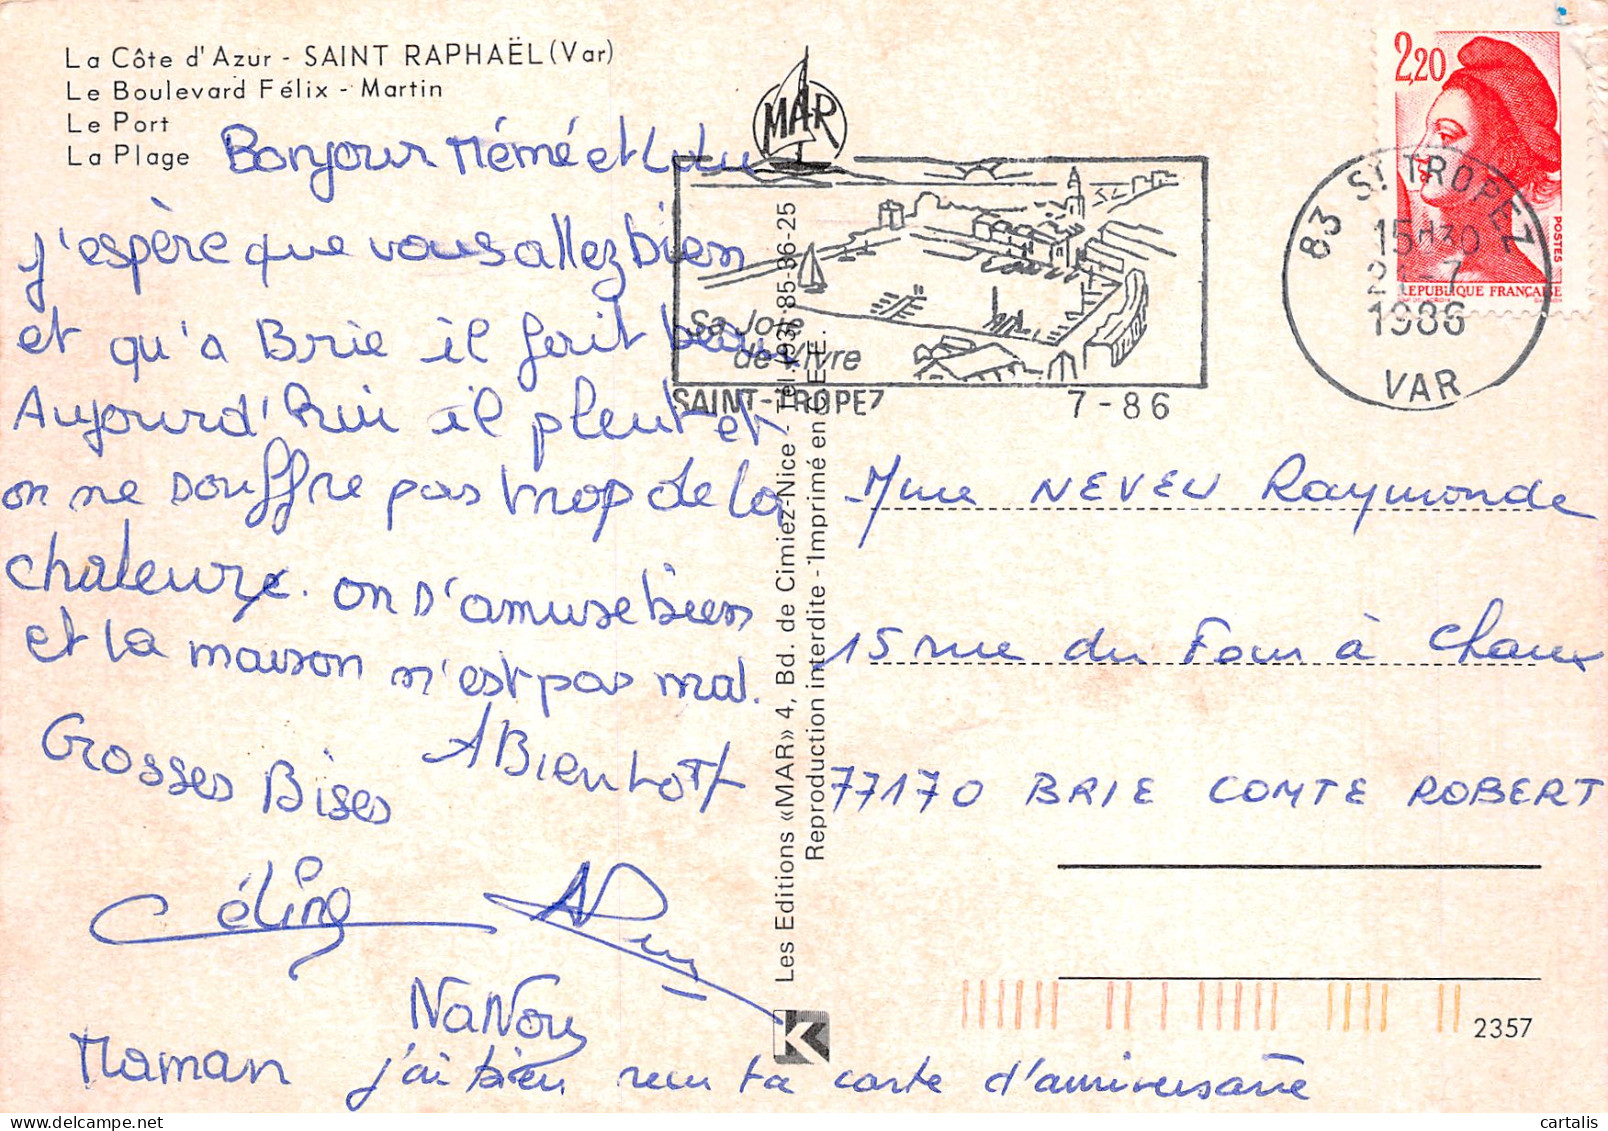 La Côte d'Azur - SAINT RAPHAËL (Var)
Le Boulevard Félix - Martin
Le Port
La Plage
Bonjour Mémé et Lulu
j'espère que vous allez bien
et qu'a Brie il fait beau
Aujourd'hui il pleut et
on ne souffre pas trop de la
chaleur. on s'amuse bien
et la maison n'est pas mal.
Grosses Bises
A Bientot
Céline
NaNou
Maman j'ai bien reçu ta carte d'anniversaire
MAR
Sa Joie
de Vivre
SAINT-TROPEZ 7-86
Les Editions «MAR» 4, Bd. de Cimiez-Nice - Tel. (93) 85-36-25
Reproduction interdite - Imprimé en C.E.E.
2,20
POSTES
REPUBLIQUE FRANÇAISE
83 ST TROPEZ
15H30
-7
1986
VAR
Mme NEVEU Raymonde
15 rue du Four à Chaux
77170 BRIE COMTE ROBERT
K
2357
cartalis
delcampe.net